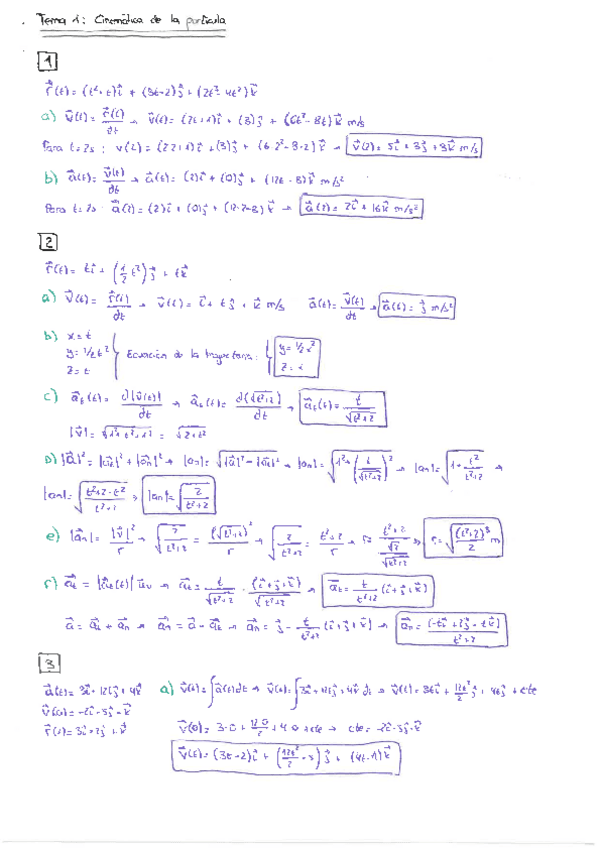 Tema 1: Cinemática de la partícula
1
r⃗(t) = (t²+t)i⃗ + (3t-2)j⃗ + (2t³-4t²)k⃗
a) v⃗(t) = r⃗(t)/dt → v⃗(t) = (2t+1)i⃗ + (3)j⃗ + (6t²-8t)k⃗ m/s
Para t=2s: v(2) = (2·2+1)i⃗ + (3)j⃗ + (6·2²-8·2)k⃗ → v⃗(2) = 5i⃗ + 3j⃗ + 8k⃗ m/s
b) a⃗(t) = v⃗(t)/dt → a⃗(t) = (2)i⃗ + (0)j⃗ + (12t-8)k⃗ m/s²
Para t=2s: a⃗(2) = (2)i⃗ + (0)j⃗ + (12·2-8)k⃗ → a⃗(2) = 2i⃗ + 16k⃗ m/s²
2
r⃗(t) = ti⃗ + (1/2 t²)j⃗ + tk⃗
a) v⃗(t) = r⃗(t)/dt → v⃗(t) = i⃗ + tj⃗ + k⃗ m/s a⃗(t) = v⃗(t)/dt → a⃗(t) = j⃗ m/s²
b) x=t
y=1/2t² Ecuación de la trayectoria: y=1/2x²
z=t z=x
c) a⃗t(t) = d|v⃗(t)|/dt → a⃗t(t) = d(√t²+2)/dt → a⃗t(t) = t/√t²+2
|v⃗| = √1²+t²+1² = √2+t²
D) |a⃗|² = |a⃗t|² + |a⃗n|² → |an| = √|a⃗|²-|a⃗t|² → |an| = √1²+(t/√t²+2)² → |an| = √1+t²/t²+2 →
|an| = √t²+2-t²/t²+2 → |an| = √2/t²+2
e) |a⃗n| = |v⃗|²/r → √2/t²+2 = (√t²+2)²/r → √2/t²+2 = t²+2/r → r = t²+2/√2/√t²+2 → r = √(t²+2)³/2 m
f) a⃗t = |a⃗t(t)| u⃗v → a⃗t = t/√t²+2 · (i⃗+tj⃗+k⃗)/√t²+2 → a⃗t = t/t²+2 (i⃗+tj⃗+k⃗)
a⃗ = a⃗t + a⃗n → a⃗n = a⃗ - a⃗t → a⃗n = j⃗ - t/t²+2 (i⃗+tj⃗+k⃗) → a⃗n = (-ti⃗+2j⃗-tk⃗)/t²+2
3
a⃗(t) = 3i⃗+12tj⃗+4k⃗ a) v⃗(t) = ∫a⃗(t)dt → v⃗(t) = ∫3i⃗+12tj⃗+4k⃗ dt → v⃗(t) = 3ti⃗ + 12t²/2 j⃗ + 4tk⃗ + cte
v⃗(0) = -2i⃗-3j⃗-k⃗
r⃗(0) = 3i⃗+2j⃗+k⃗ v⃗(0) = 3·0+12·0/2+4·0+cte → cte = -2i⃗-3j⃗-k⃗
v⃗(t) = (3t-2)i⃗ + (12t²/2-3)j⃗ + (4t-1)k⃗